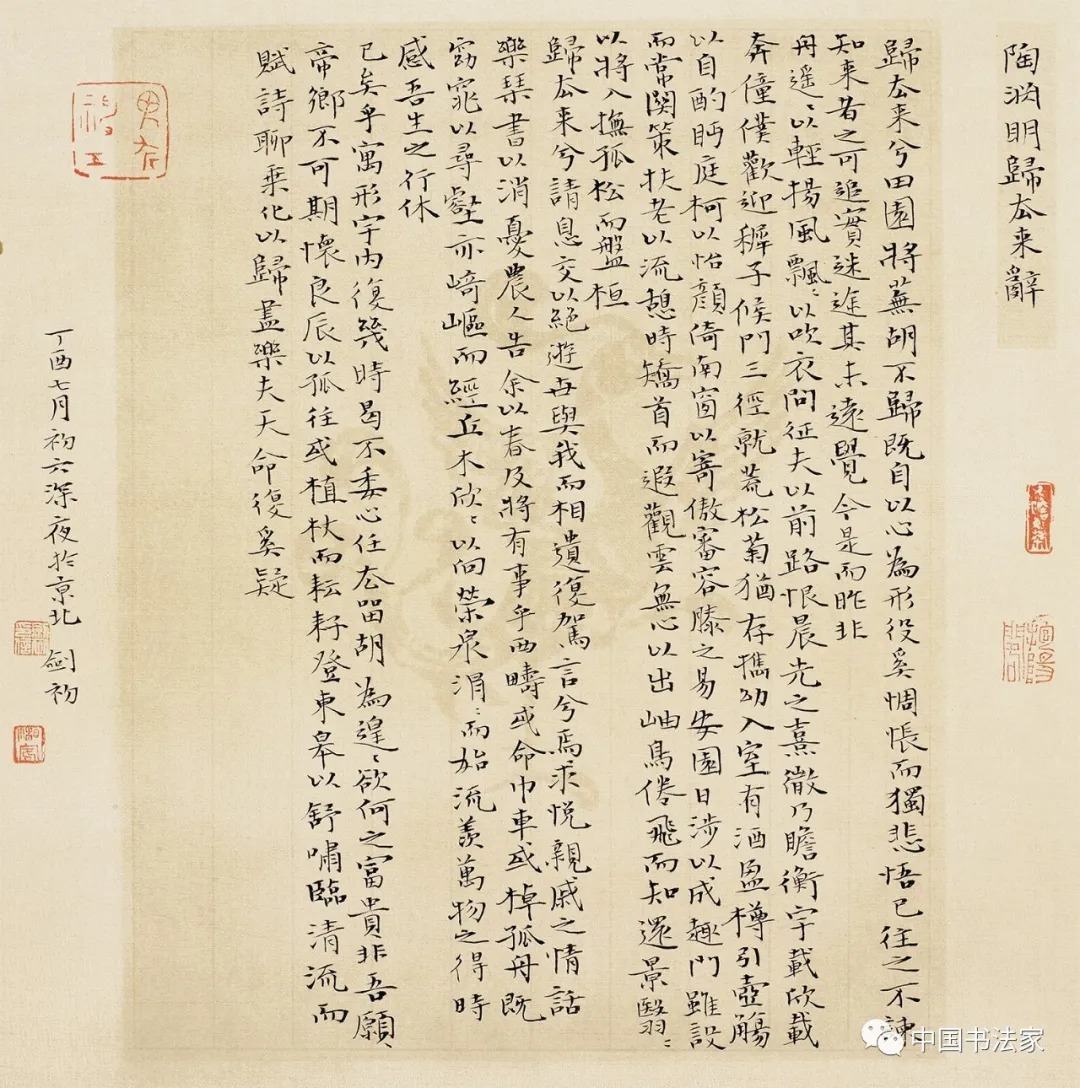 陶渊明歸去来辭
歸去来兮田園將蕪胡不歸既自以心為形役奚惆悵而獨悲悟已往之不諫
知来者之可追實迷途其未遠覺今是而昨非
舟遥〻以輕揚風飄〻以吹衣問征夫以前路恨晨光之熹微乃瞻衡宇載欣載
奔僮僕歡迎穉子候門三徑就荒松菊猶存攜幼入室有酒盈樽引壺觴
以自酌眄庭柯以怡顔倚南窗以寄傲審容膝之易安園日涉以成趣門雖設
而常関策扶老以流憩時矯首而遐觀雲無心以出岫鳥倦飛而知還景翳〻
以將入撫孤松而盤桓
歸去来兮請息交以絕遊世與我而相遺復駕言兮焉求悦親戚之情話
樂琴書以消憂農人告余以春及將有事乎西疇或命巾車或棹孤舟既
窈窕以尋壑亦崎嶇而經丘木欣〻以向榮泉涓〻而始流羨萬物之得時
感吾生之行休
已矣乎寓形宇内復幾時曷不委心任去留胡為遑〻欲何之富貴非吾願
帝鄉不可期懷良辰以孤往或植杖而耘耔登東皋以舒嘯臨清流而
賦詩聊乗化以歸盡樂夫天命復奚疑
丁酉七月初六深夜於京北 劍初
中国书法家